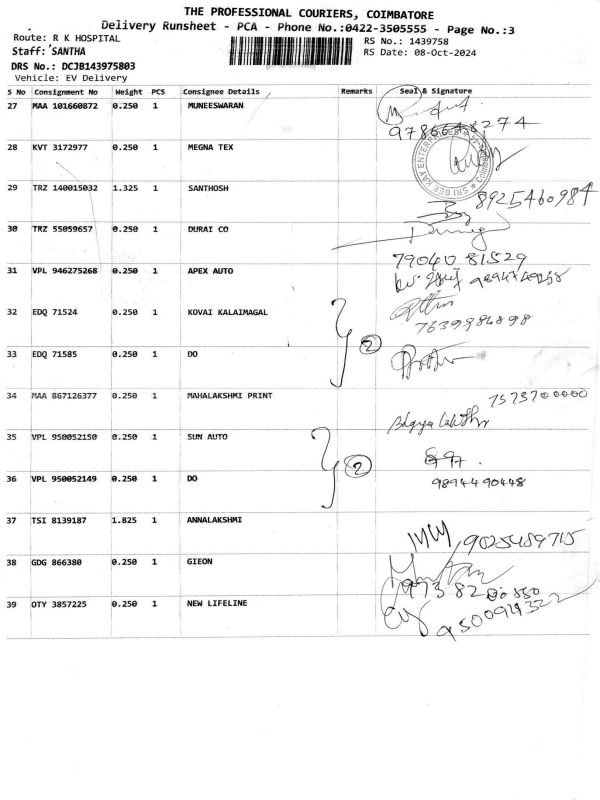 THE PROFESSIONAL COURIERS, COIMBATORE
Delivery Runsheet - PCA - Phone No.:0422-3505555 - Page No.:3
Route: R K HOSPITAL RS No.: 1439758
Staff: SANTHA RS Date: 08-Oct-2024
DRS No.: DCJB143975803
Vehicle: EV Delivery
S No Consignment No Weight PCS Consignee Details Remarks Seal & Signature
27 MAA 101660872 0.250 1 MUNEESWARAN
28 KVT 3172977 0.250 1 MEGNA TEX
SRI GEE KAY ENTERPRISES
29 TRZ 140015032 1.325 1 SANTHOSH 8925460984
30 TRZ 55059657 0.250 1 DURAI CO
79040 81529
31 VPL 946275268 0.250 1 APEX AUTO
32 EDQ 71524 0.250 1 KOVAI KALAIMAGAL
7639984898
2
33 EDQ 71585 0.250 1 DO
34 MAA 867126377 0.250 1 MAHALAKSHMI PRINT
35 VPL 950052150 0.250 1 SUN AUTO
2
36 VPL 950052149 0.250 1 DO 9894490448
37 TSI 8139187 1.825 1 ANNALAKSHMI
9025489715
38 GDG 866380 0.250 1 GIEON
39 OTY 3857225 0.250 1 NEW LIFELINE